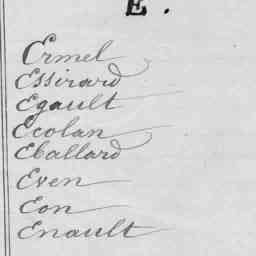 E.
Ermel
Essirard
Egault
Ecolan
Eballard
Even
Eon
Enault